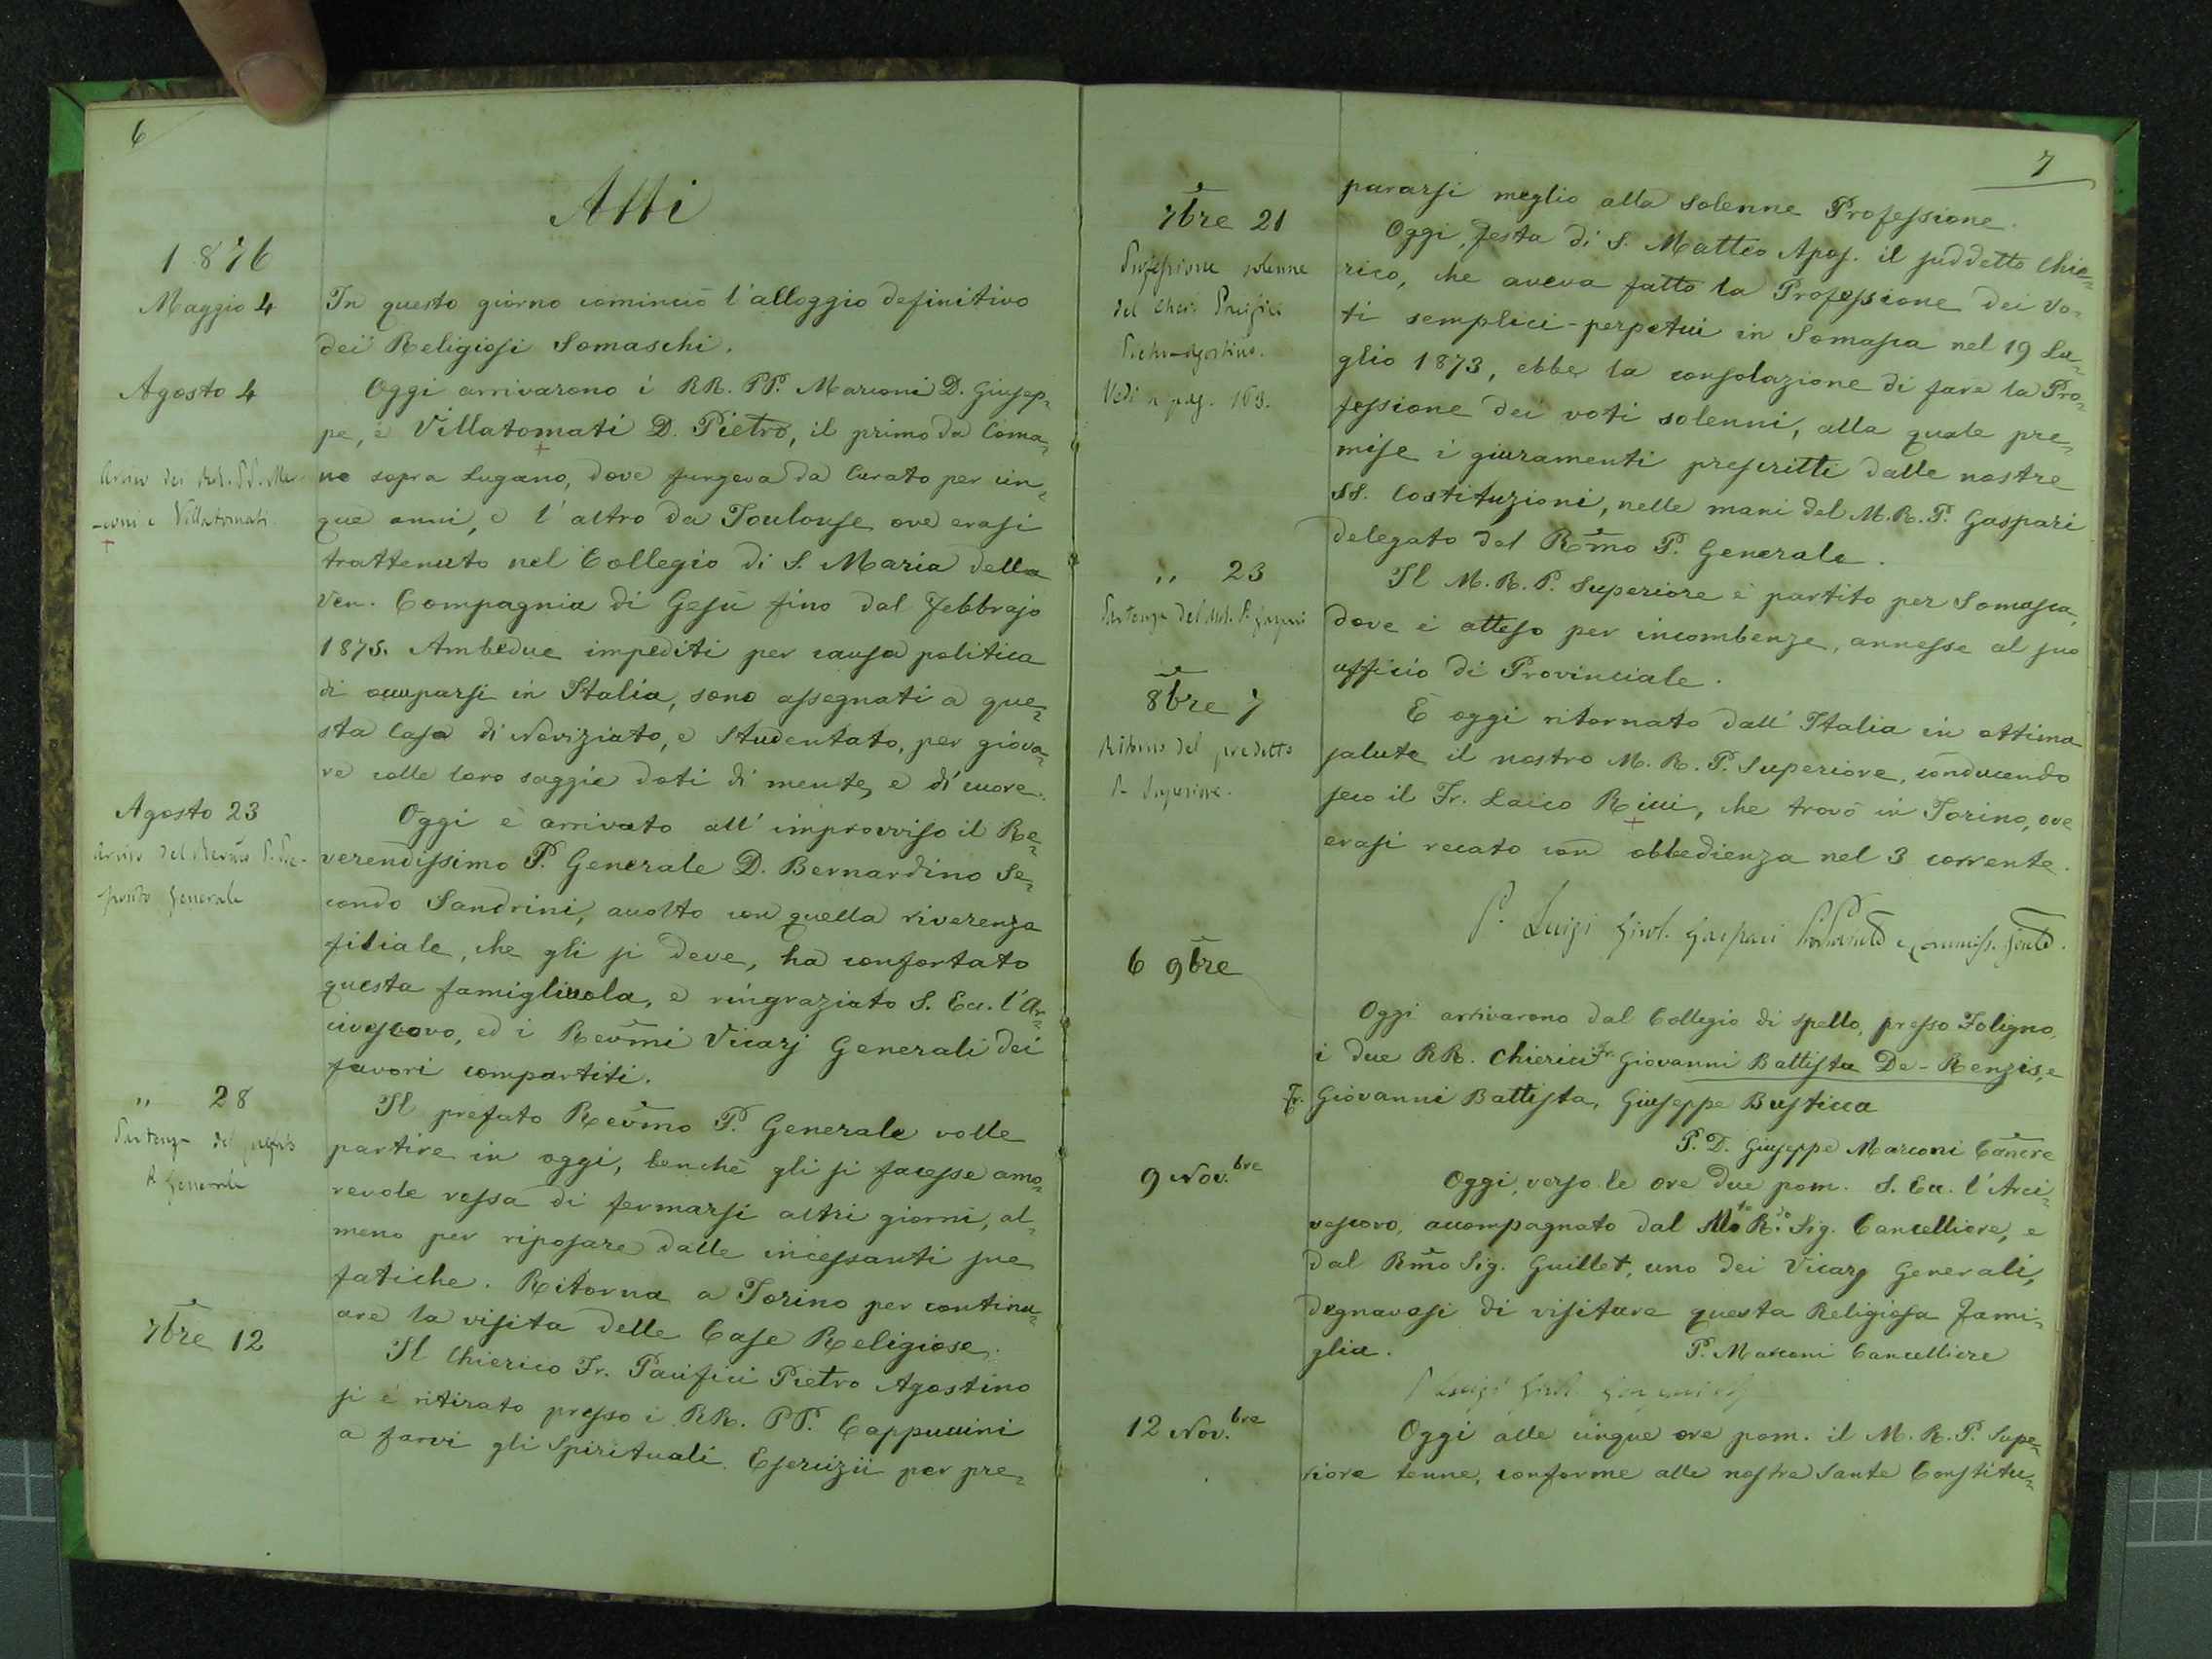 6
Atti
1876
Maggio 4
In questo giorno cominciò l'alloggio definitivo
dei Religiosi Somaschi.
Agosto 4
Oggi arrivarono i RR. PP. Marconi D. Giusep=
pe, e Villatomati D. Pietro, il primo da Coma=
Arrivo dei RR. PP. Mar-
-coni e Villatomati.
no sopra Lugano, dove fungeva da Curato per cin=
que anni, e l'altro da Toulouse ove erasi
trattenuto nel Collegio di S. Maria della
Ven. Compagnia di Gesù fino dal Febbrajo
1875. Ambedue impediti per causa politica
di occuparsi in Italia, sono assegnati a que=
sta Casa di Noviziato, e Studentato, per giova=
re colle loro saggie doti di mente, e di cuore.
Agosto 23
Arrivo del Revmo P. Pre-
posito Generale
Oggi è arrivato all'improvviso il Re=
verendissimo P. Generale D. Bernardino Se=
condo Sandrini, accolto con quella riverenza
filiale, che gli si deve, ha confortato
questa famigliuola, e ringraziato S. Ecc. l'Ar=
civescovo, ed i Revmi Vicarj Generali dei
favori compartiti.
" 28
Partenza del prefato
P. Generale
Il prefato Revmo P. Generale volle
partire in oggi, benchè gli si facesse amo=
revole ressa di fermarsi altri giorni, al=
meno per riposare dalle incessanti sue
fatiche. Ritorna a Torino per continu=
are la visita delle Case Religiose.
7bre 12
Il Chierico Fr. Pacifici Pietro Agostino
si è ritirato presso i RR. PP. Cappuccini
a farvi gli Spirituali Esercizii per pre=
7
pararsi meglio alla solenne Professione.
7bre 21
Professione solenne
del Cher. Pacifici
Pietro Agostino.
Vedi a pag. 163.
Oggi, festa di S. Matteo Apos. il suddetto Chie=
rico, che aveva fatto la Professione dei vo=
ti semplici-perpetui in Somasca nel 19 Lu=
glio 1873, ebbe la consolazione di fare la Pro=
fessione dei voti solenni, alla quale pre=
mise i giuramenti prescritti dalle nostre
SS. Costituzioni, nelle mani del M. R. P. Gaspari
delegato dal Rmo P. Generale.
" 23
Partenza del M.R. P. Gaspari
Il M. R. P. Superiore è partito per Somasca,
dove è atteso per incombenze, annesse al suo
ufficio di Provinciale.
8bre 7
Ritorno del predetto
P. Superiore.
È oggi ritornato dall'Italia in ottima
salute il nostro M. R. P. Superiore, conducendo
seco il Fr. Laico Ricci, che trovò in Torino, ove
erasi recato con obbedienza nel 3 corrente.
P. Luigi Girol. Gaspari
6 9bre
Oggi arrivarono dal Collegio di Spello, presso Foligno
i due RR. Chierici Fr. Giovanni Battista De-Renzis, e
Fr. Giovanni Battista, Giuseppe Bustica
P. D. Giuseppe Marconi Cancre
9 Nov.bre
Oggi, verso le ore due pom. S. Ecc. l'Arci=
vescovo, accompagnato dal Mto R.do Sig. Cancelliere, e
dal Rmo Sig. Guillet, uno dei Vicarj Generali,
degnavasi di visitare questa Religiosa fami=
glia.
P. Marconi Cancelliere
P Luigi Girol. Gaspari
12 Nov.bre
Oggi alle cinque ore pom. il M. R. P. Supe=
riore tenne, conforme alle nostre Sante Constitu=